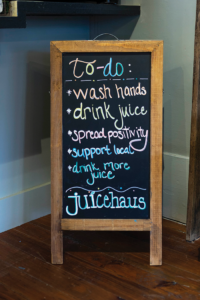 to-do:
+wash hands
+drink juice
+spread positivity
+support local
+drink more
juice
juicehaus